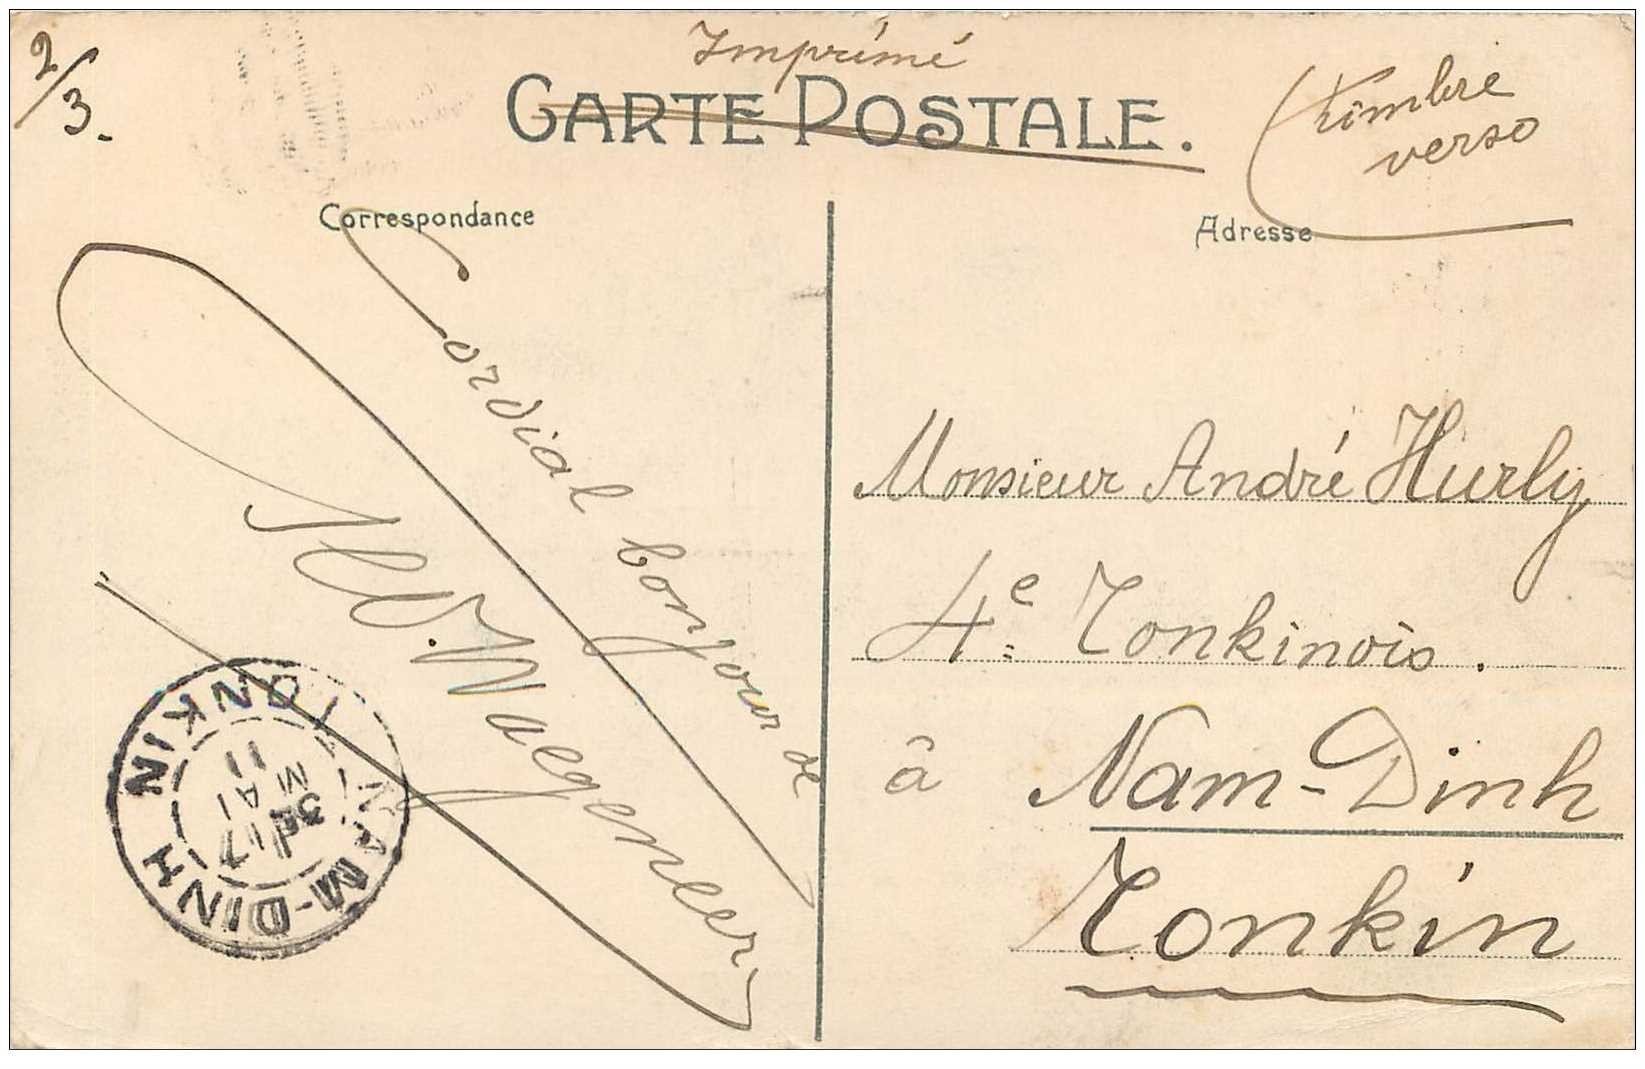 2/3.
Imprimé
CARTE POSTALE.
(timbre
verso
Correspondance
Adresse
Cordial bonjour de
W. Wagener
Monsieur André Hurly
4e Tonkinois.
à Nam-Dinh
Tonkin
NAM-DINH
TONKIN
11
MAI